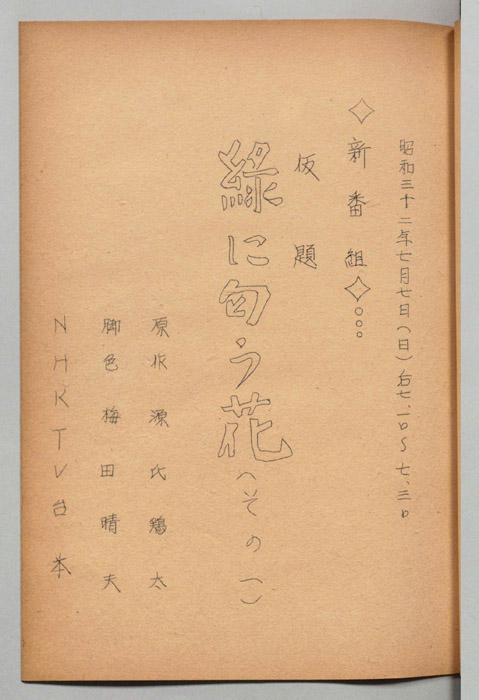 昭和三十二年七月七日(日)后七、一〇〜七、三〇
◇新番組◇○○○
仮題
緑に匂う花(その一)
原作 源氏鶏太
脚色 梅田晴夫
NHKTV台本